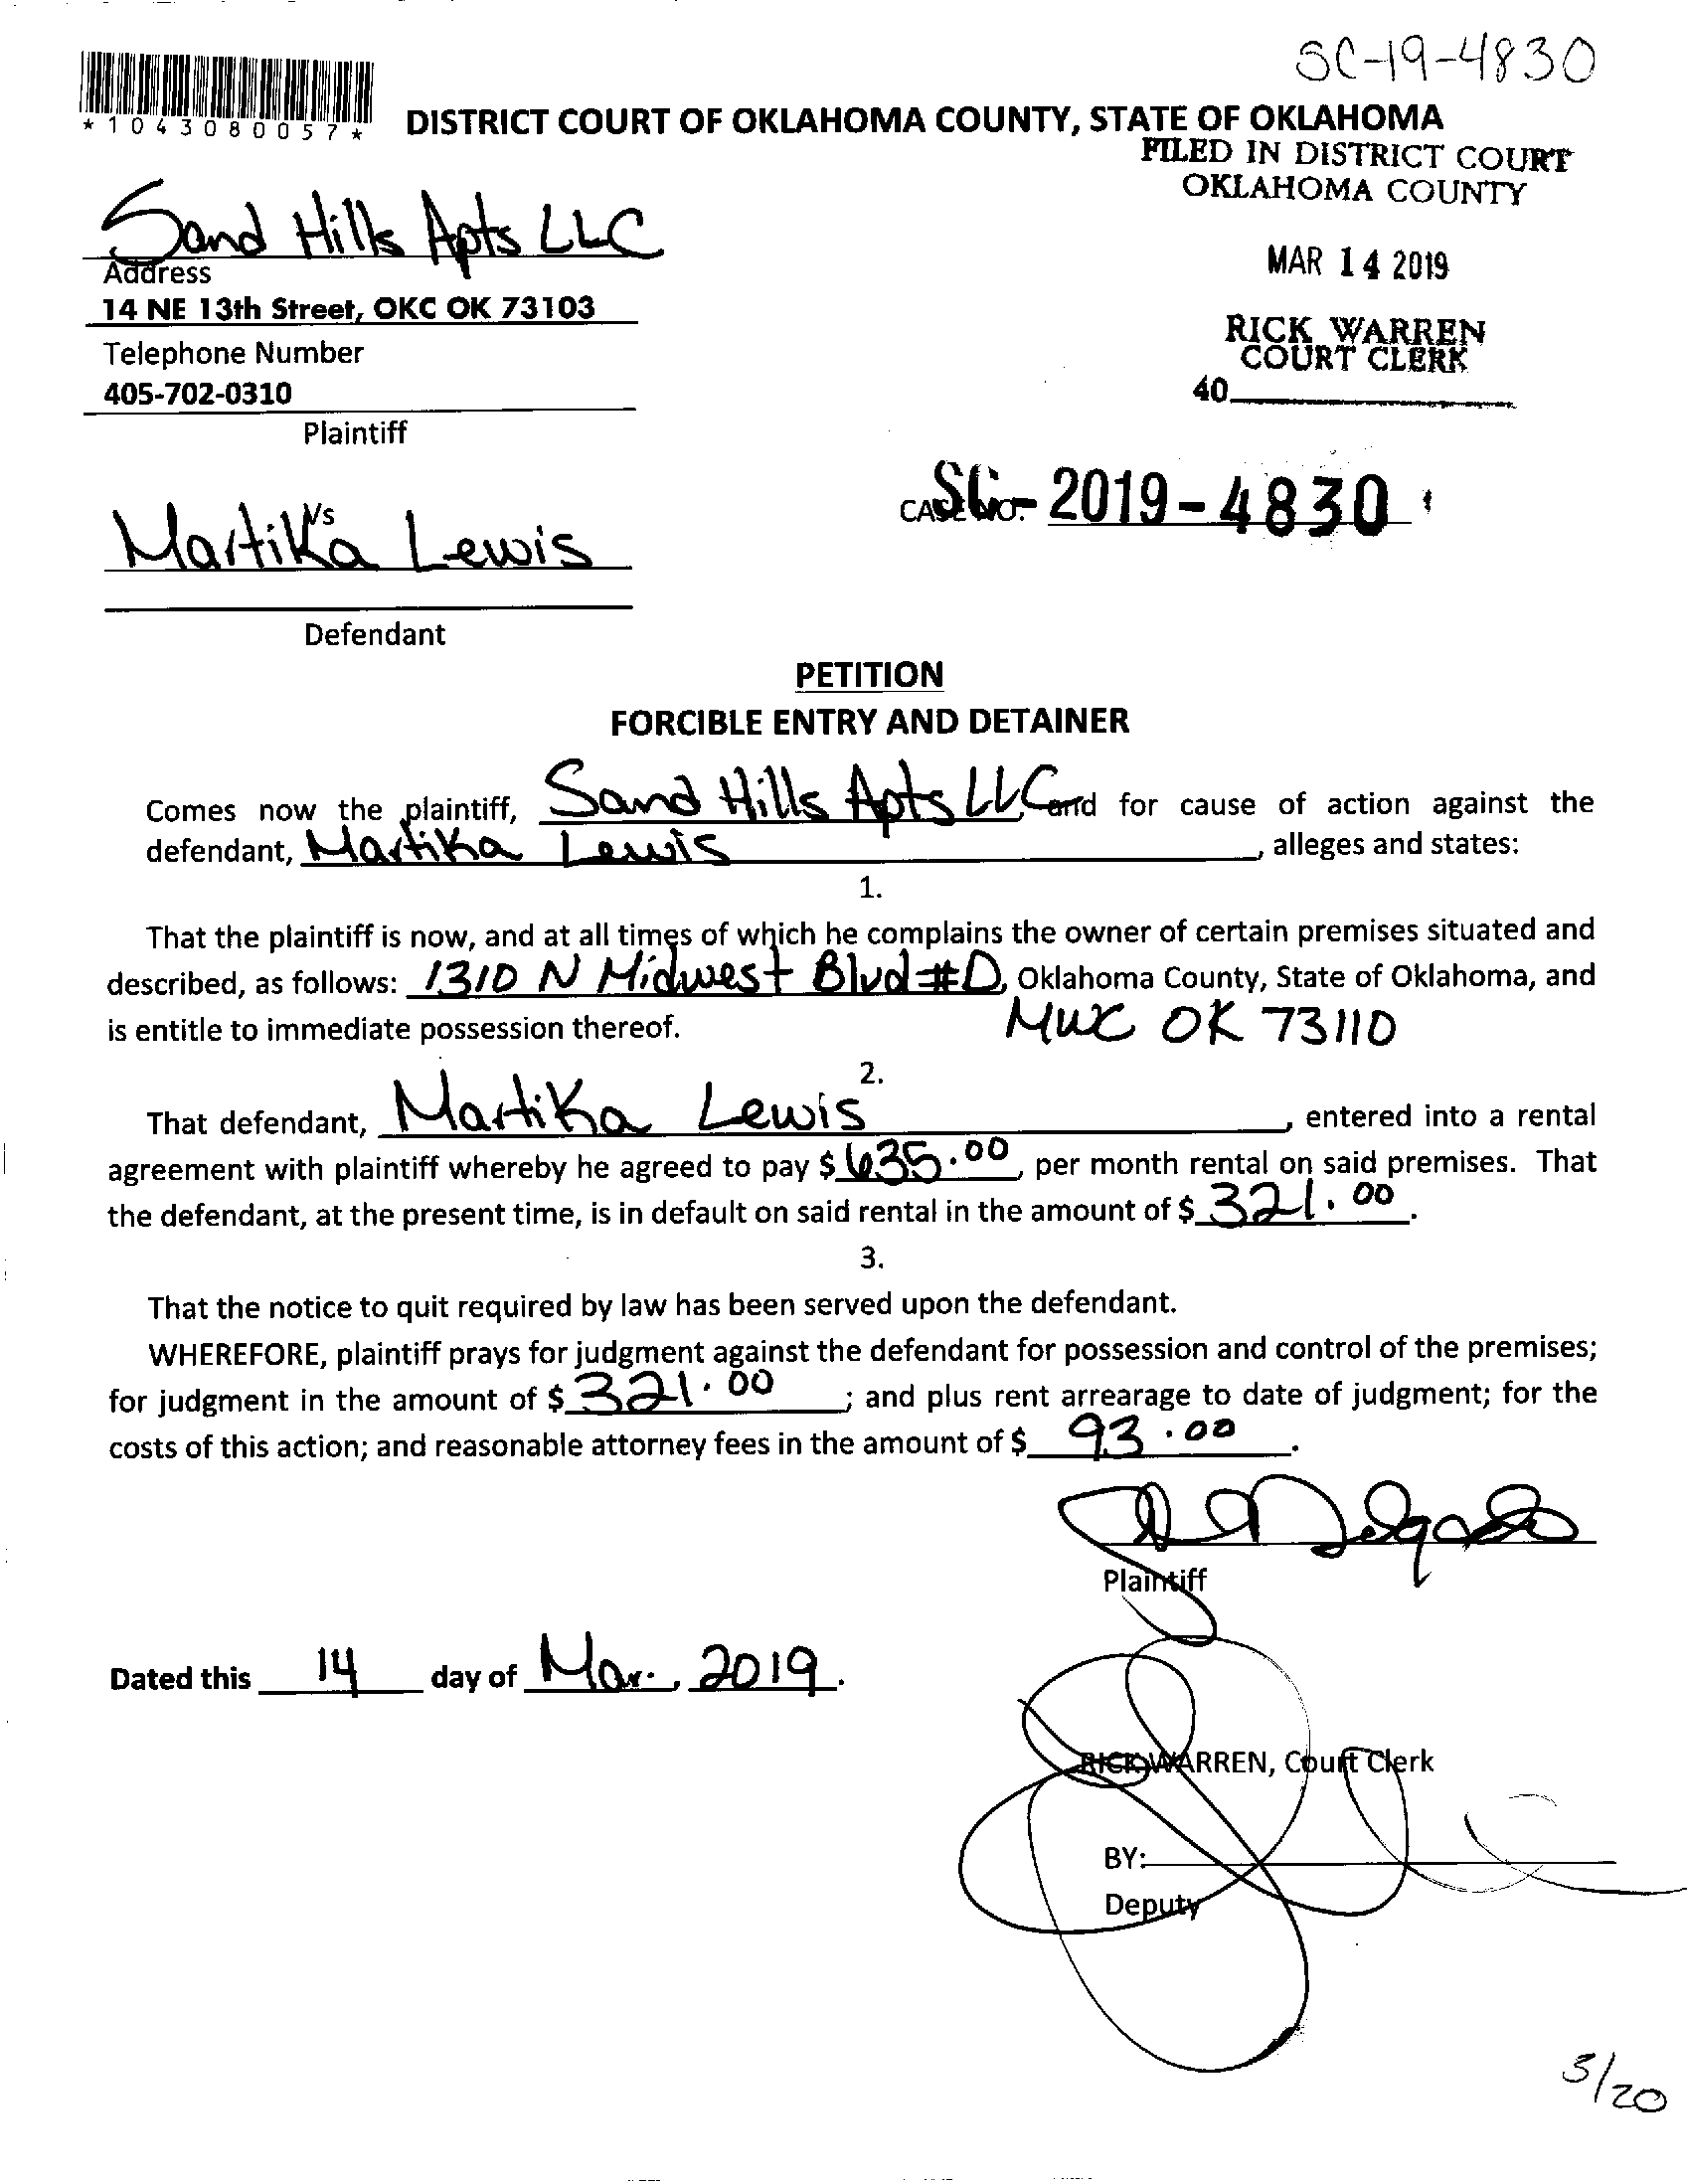 SC-19-4830
*1043080057*
DISTRICT COURT OF OKLAHOMA COUNTY, STATE OF OKLAHOMA
FILED IN DISTRICT COURT
OKLAHOMA COUNTY
MAR 14 2019
RICK WARREN
COURT CLERK
40
Sand Hills Apts LLC
Address
14 NE 13th Street, OKC OK 73103
Telephone Number
405-702-0310
Plaintiff
Vs
CASE NO. 2019-4830
Martika Lewis
Defendant
PETITION
FORCIBLE ENTRY AND DETAINER
Comes now the plaintiff, Sand Hills Apts LLC and for cause of action against the
defendant, Martika Lewis, alleges and states:
1.
That the plaintiff is now, and at all times of which he complains the owner of certain premises situated and
described, as follows: 1310 N Midwest Blvd #D, Oklahoma County, State of Oklahoma, and
is entitle to immediate possession thereof. MWC OK 73110
2.
That defendant, Martika Lewis, entered into a rental
agreement with plaintiff whereby he agreed to pay $ 635.00, per month rental on said premises. That
the defendant, at the present time, is in default on said rental in the amount of $ 321.00.
3.
That the notice to quit required by law has been served upon the defendant.
WHEREFORE, plaintiff prays for judgment against the defendant for possession and control of the premises;
for judgment in the amount of $ 321.00; and plus rent arrearage to date of judgment; for the
costs of this action; and reasonable attorney fees in the amount of $ 93.00.
Delgado
Plaintiff
Dated this 14 day of Mar., 2019.
RICK WARREN, Court Clerk
BY:
Deputy
3/20